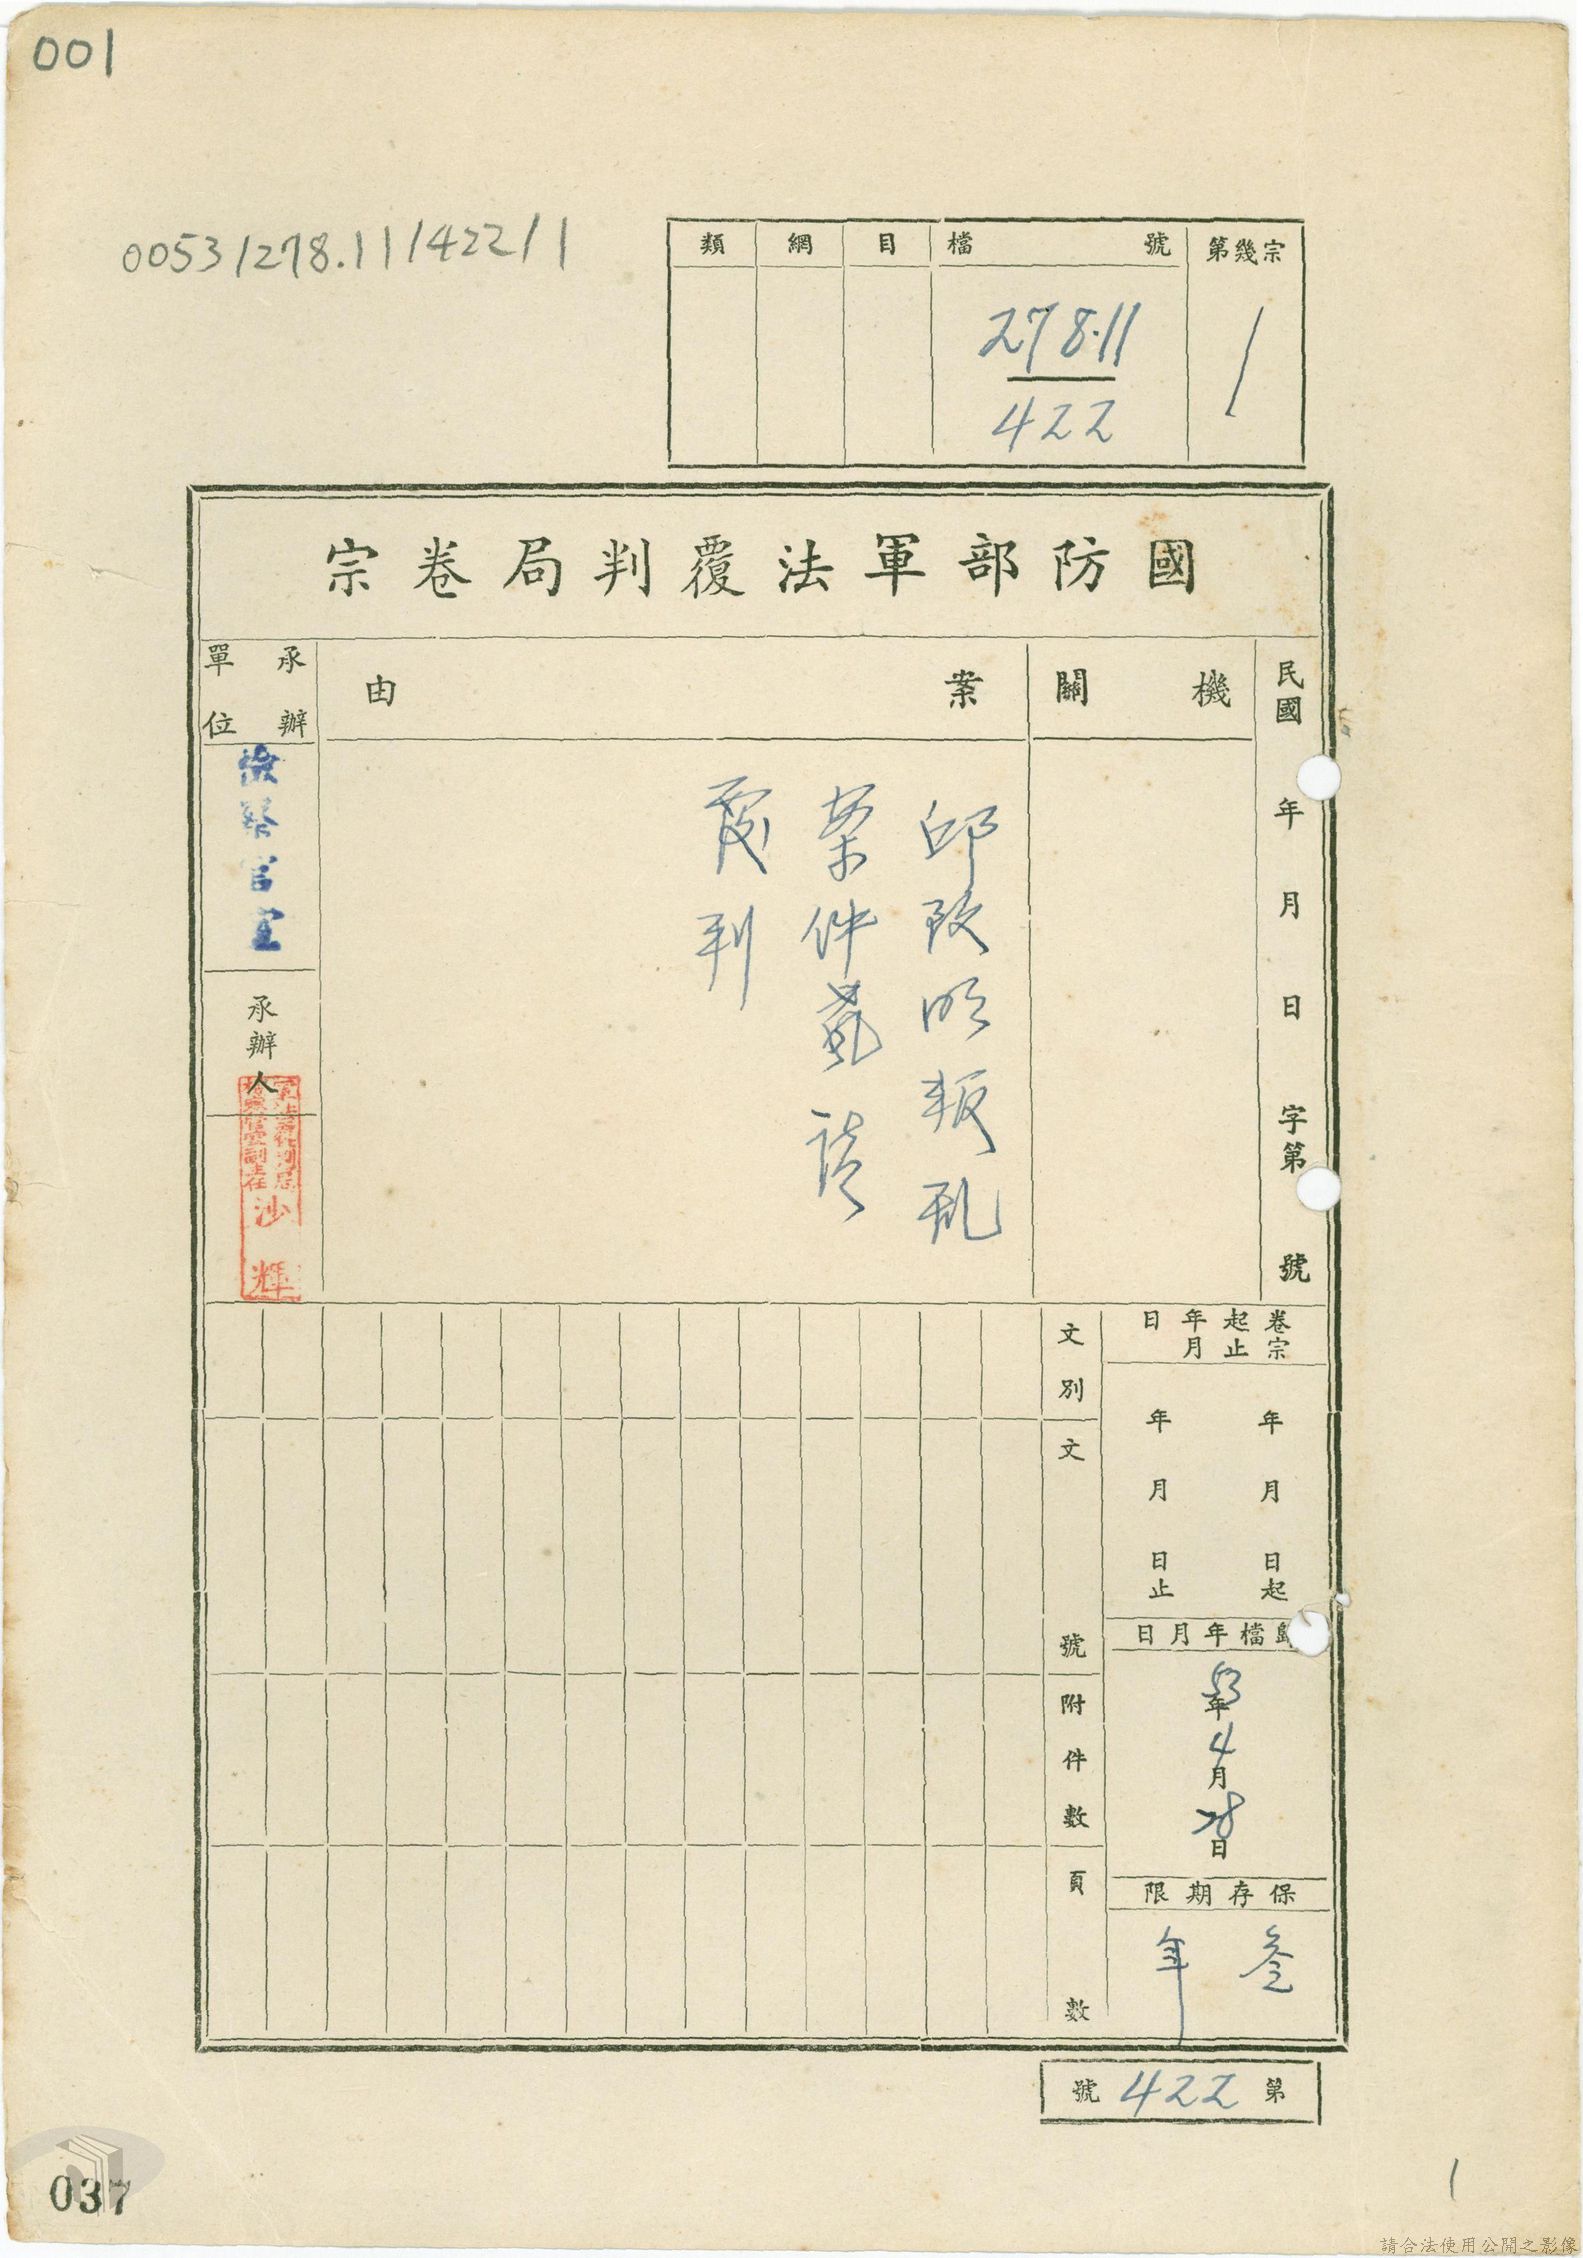 001
0053/278.11/422/1
類 綱 目 檔號 第幾宗
278.11
422
1
國防部軍法覆判局卷宗
民國 年 月 日 字第 號
機關
案由
邱致明叛亂
案件聲請
覆判
承辦單位
檢察官室
承辦人
軍法覆判局
檢察官室副主任
沙輝
卷宗起止年月日
年 月 日起
年 月 日止
歸檔年月日
53年4月28日
保存期限
叁年
文別
文號
附件數
頁數
第422號
1
037
請合法使用公開之影像